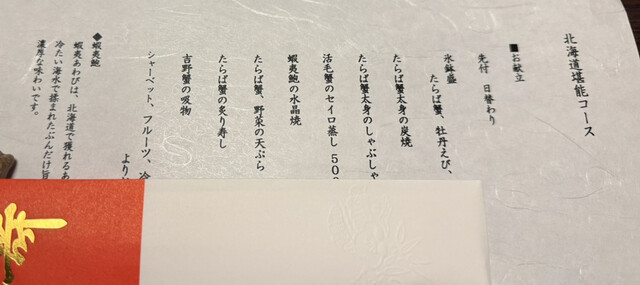 北海道堪能コース
■お献立
先付 日替わり
氷鉢盛
たらば蟹、牡丹えび、
たらば蟹太身の炭焼
たらば蟹太身のしゃぶしゃ
活毛蟹のセイロ蒸し 50
蝦夷鮑の水晶焼
たらば蟹、野菜の天ぷら
たらば蟹の炙り寿し
吉野蟹の吸物
シャーベット、フルーツ、冷
より
◆蝦夷鮑
蝦夷あわびは、北海道で獲れるあ
冷たい海水で揉まれたぶんだけ旨
濃厚な味わいです。